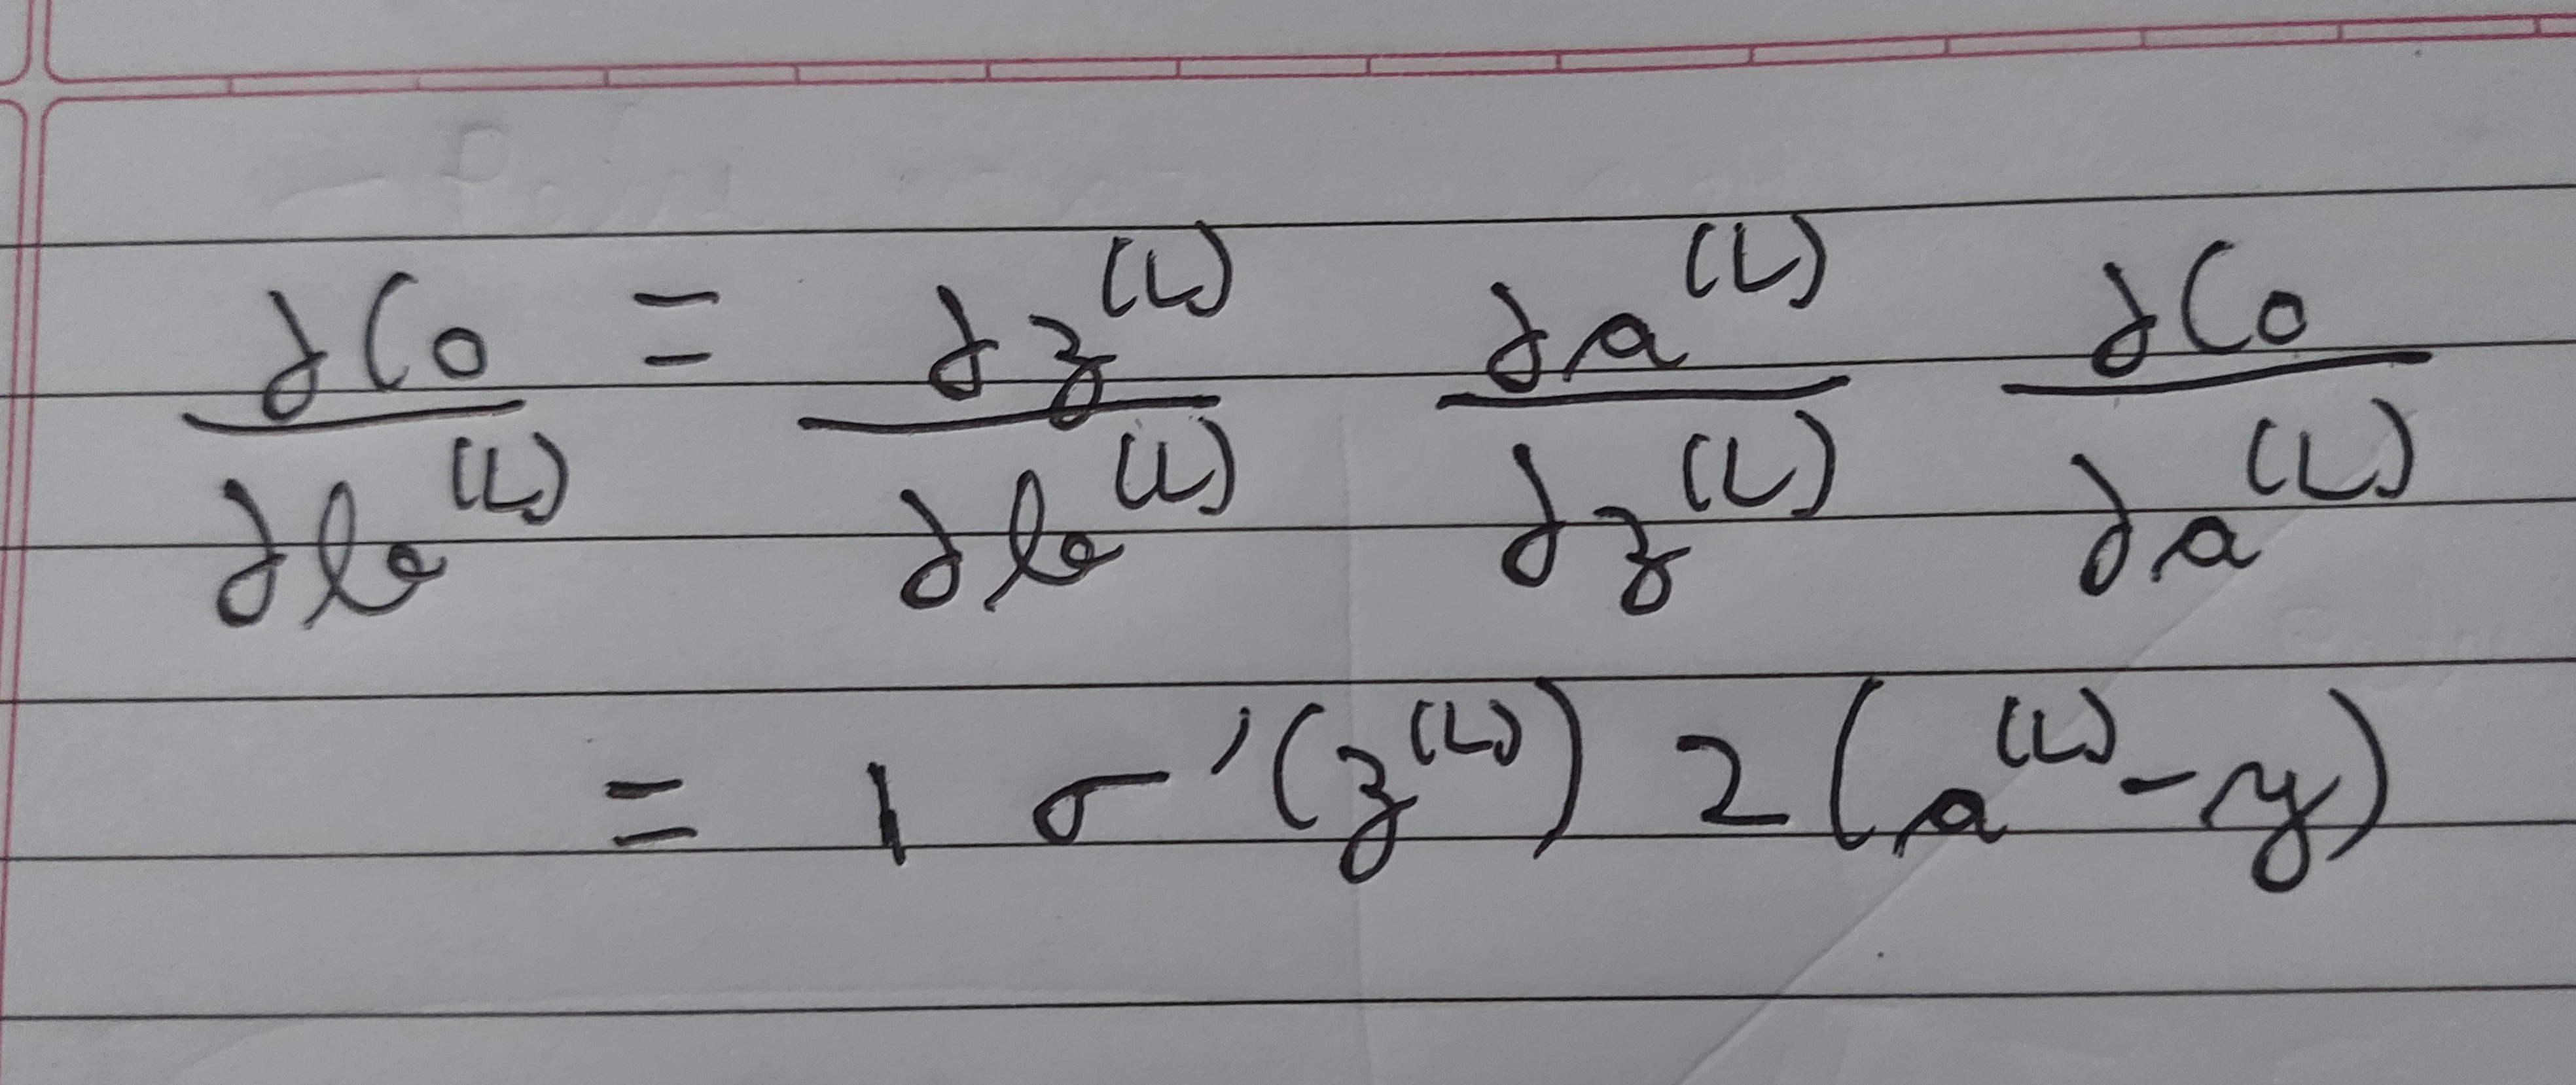 ∂C₀/∂b^(L) = ∂z^(L)/∂b^(L) ∂a^(L)/∂z^(L) ∂C₀/∂a^(L)
= 1 σ'(z^(L)) 2(a^(L) - y)